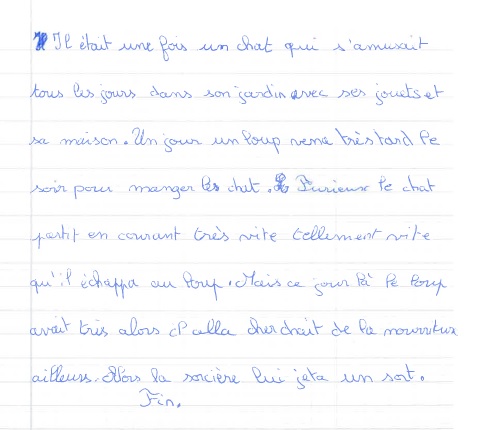 Il était une fois un chat qui s'amusait
tous les jours dans son jardin avec ses jouets et
sa maison. Un jour un loup vena très tard le
soir pour manger les chat. Furieux le chat
partit en courant très vite tellement vite
qu'il échappa au loup. Mais ce jour là le loup
avait tris alors il alla cherchait de la nourriture
ailleurs. Alors la sorcière lui jeta un sort.
Fin.